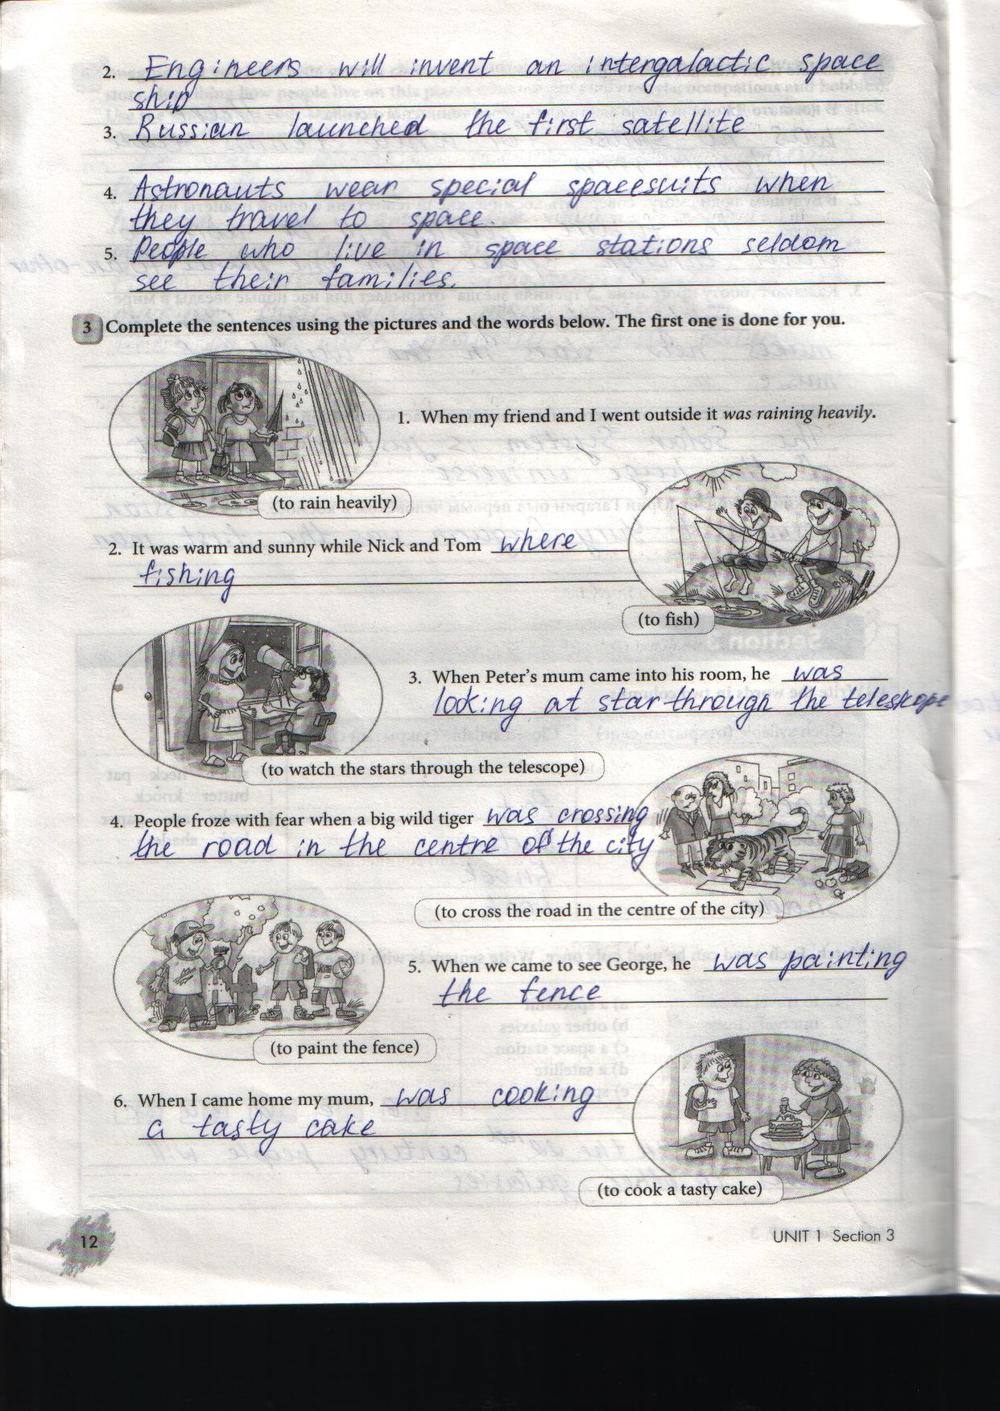 2. Engineers will invent an intergalactic space
ship
3. Russian launched the first satellite
4. Astronauts wear special spacesuits when
they travel to space.
5. People who live in space stations seldom
see their families.
3 Complete the sentences using the pictures and the words below. The first one is done for you.
1. When my friend and I went outside it was raining heavily.
(to rain heavily)
2. It was warm and sunny while Nick and Tom where
fishing
(to fish)
3. When Peter's mum came into his room, he was
looking at star through the teleskope
(to watch the stars through the telescope)
4. People froze with fear when a big wild tiger was crossing
the road in the centre of the city
(to cross the road in the centre of the city)
5. When we came to see George, he was painting
the fence
(to paint the fence)
6. When I came home my mum, was cooking
a tasty cake
(to cook a tasty cake)
12
UNIT 1 Section 3